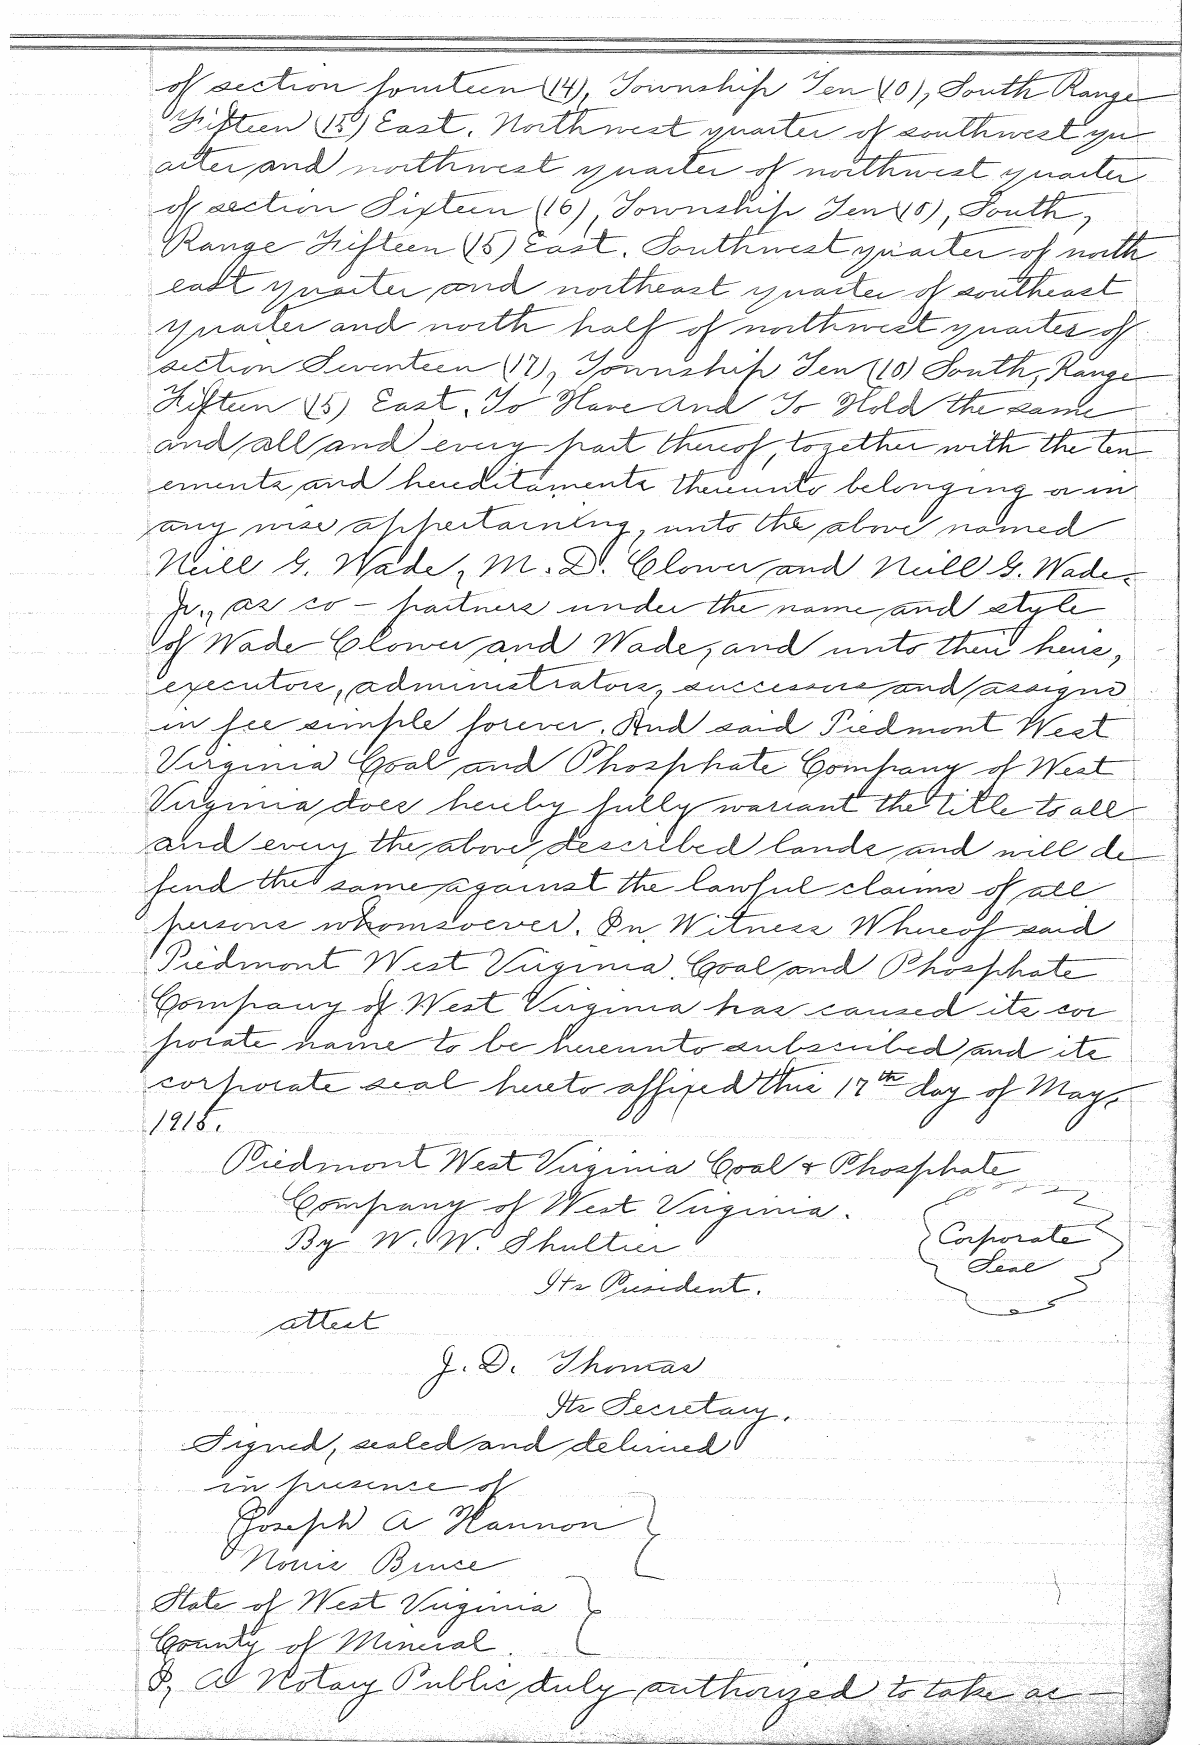 of section fourteen (14), Township Ten (10), South Range
Fifteen (15) East. Northwest quarter of southwest qu
arter and northwest quarter of northwest quarter
of section Sixteen (16), Township Ten (10), South,
Range Fifteen (15) East. Southwest quarter of north
east quarter and northeast quarter of southeast
quarter and north half of northwest quarter of
section Seventeen (17), Township Ten (10) South, Range
Fifteen (15) East. To Have And To Hold the same
and all and every part thereof, together with the ten
ements and hereditaments thereunto belonging or in
any wise appertaining, unto the above named
Neill G. Wade, M. D. Clower and Neill G. Wade,
Jr., as co - partners under the name and style
of Wade Clower and Wade, and unto their heirs,
executors, administrators, successors and assigns
in fee simple forever. And said Piedmont West
Virginia Coal and Phosphate Company of West
Virginia does hereby fully warrant the title to all
and every the above described lands and will de
fend the same against the lawful claims of all
persons whomsoever. In Witness Whereof said
Piedmont West Virginia Coal and Phosphate
Company of West Virginia has caused its cor
porate name to be hereunto subscribed and its
corporate seal hereto affixed this 17th day of May,
1915.
Piedmont West Virginia Coal & Phosphate
Company of West Virginia.
By W. W. Shultier
Corporate
Seal
Its President.
attest
J. D. Thomas
Its Secretary.
Signed, sealed and delivered
in presence of
Joseph A Hannon
Norris Bruce
State of West Virginia
County of Mineral
I, A Notary Public duly authorized to take ac